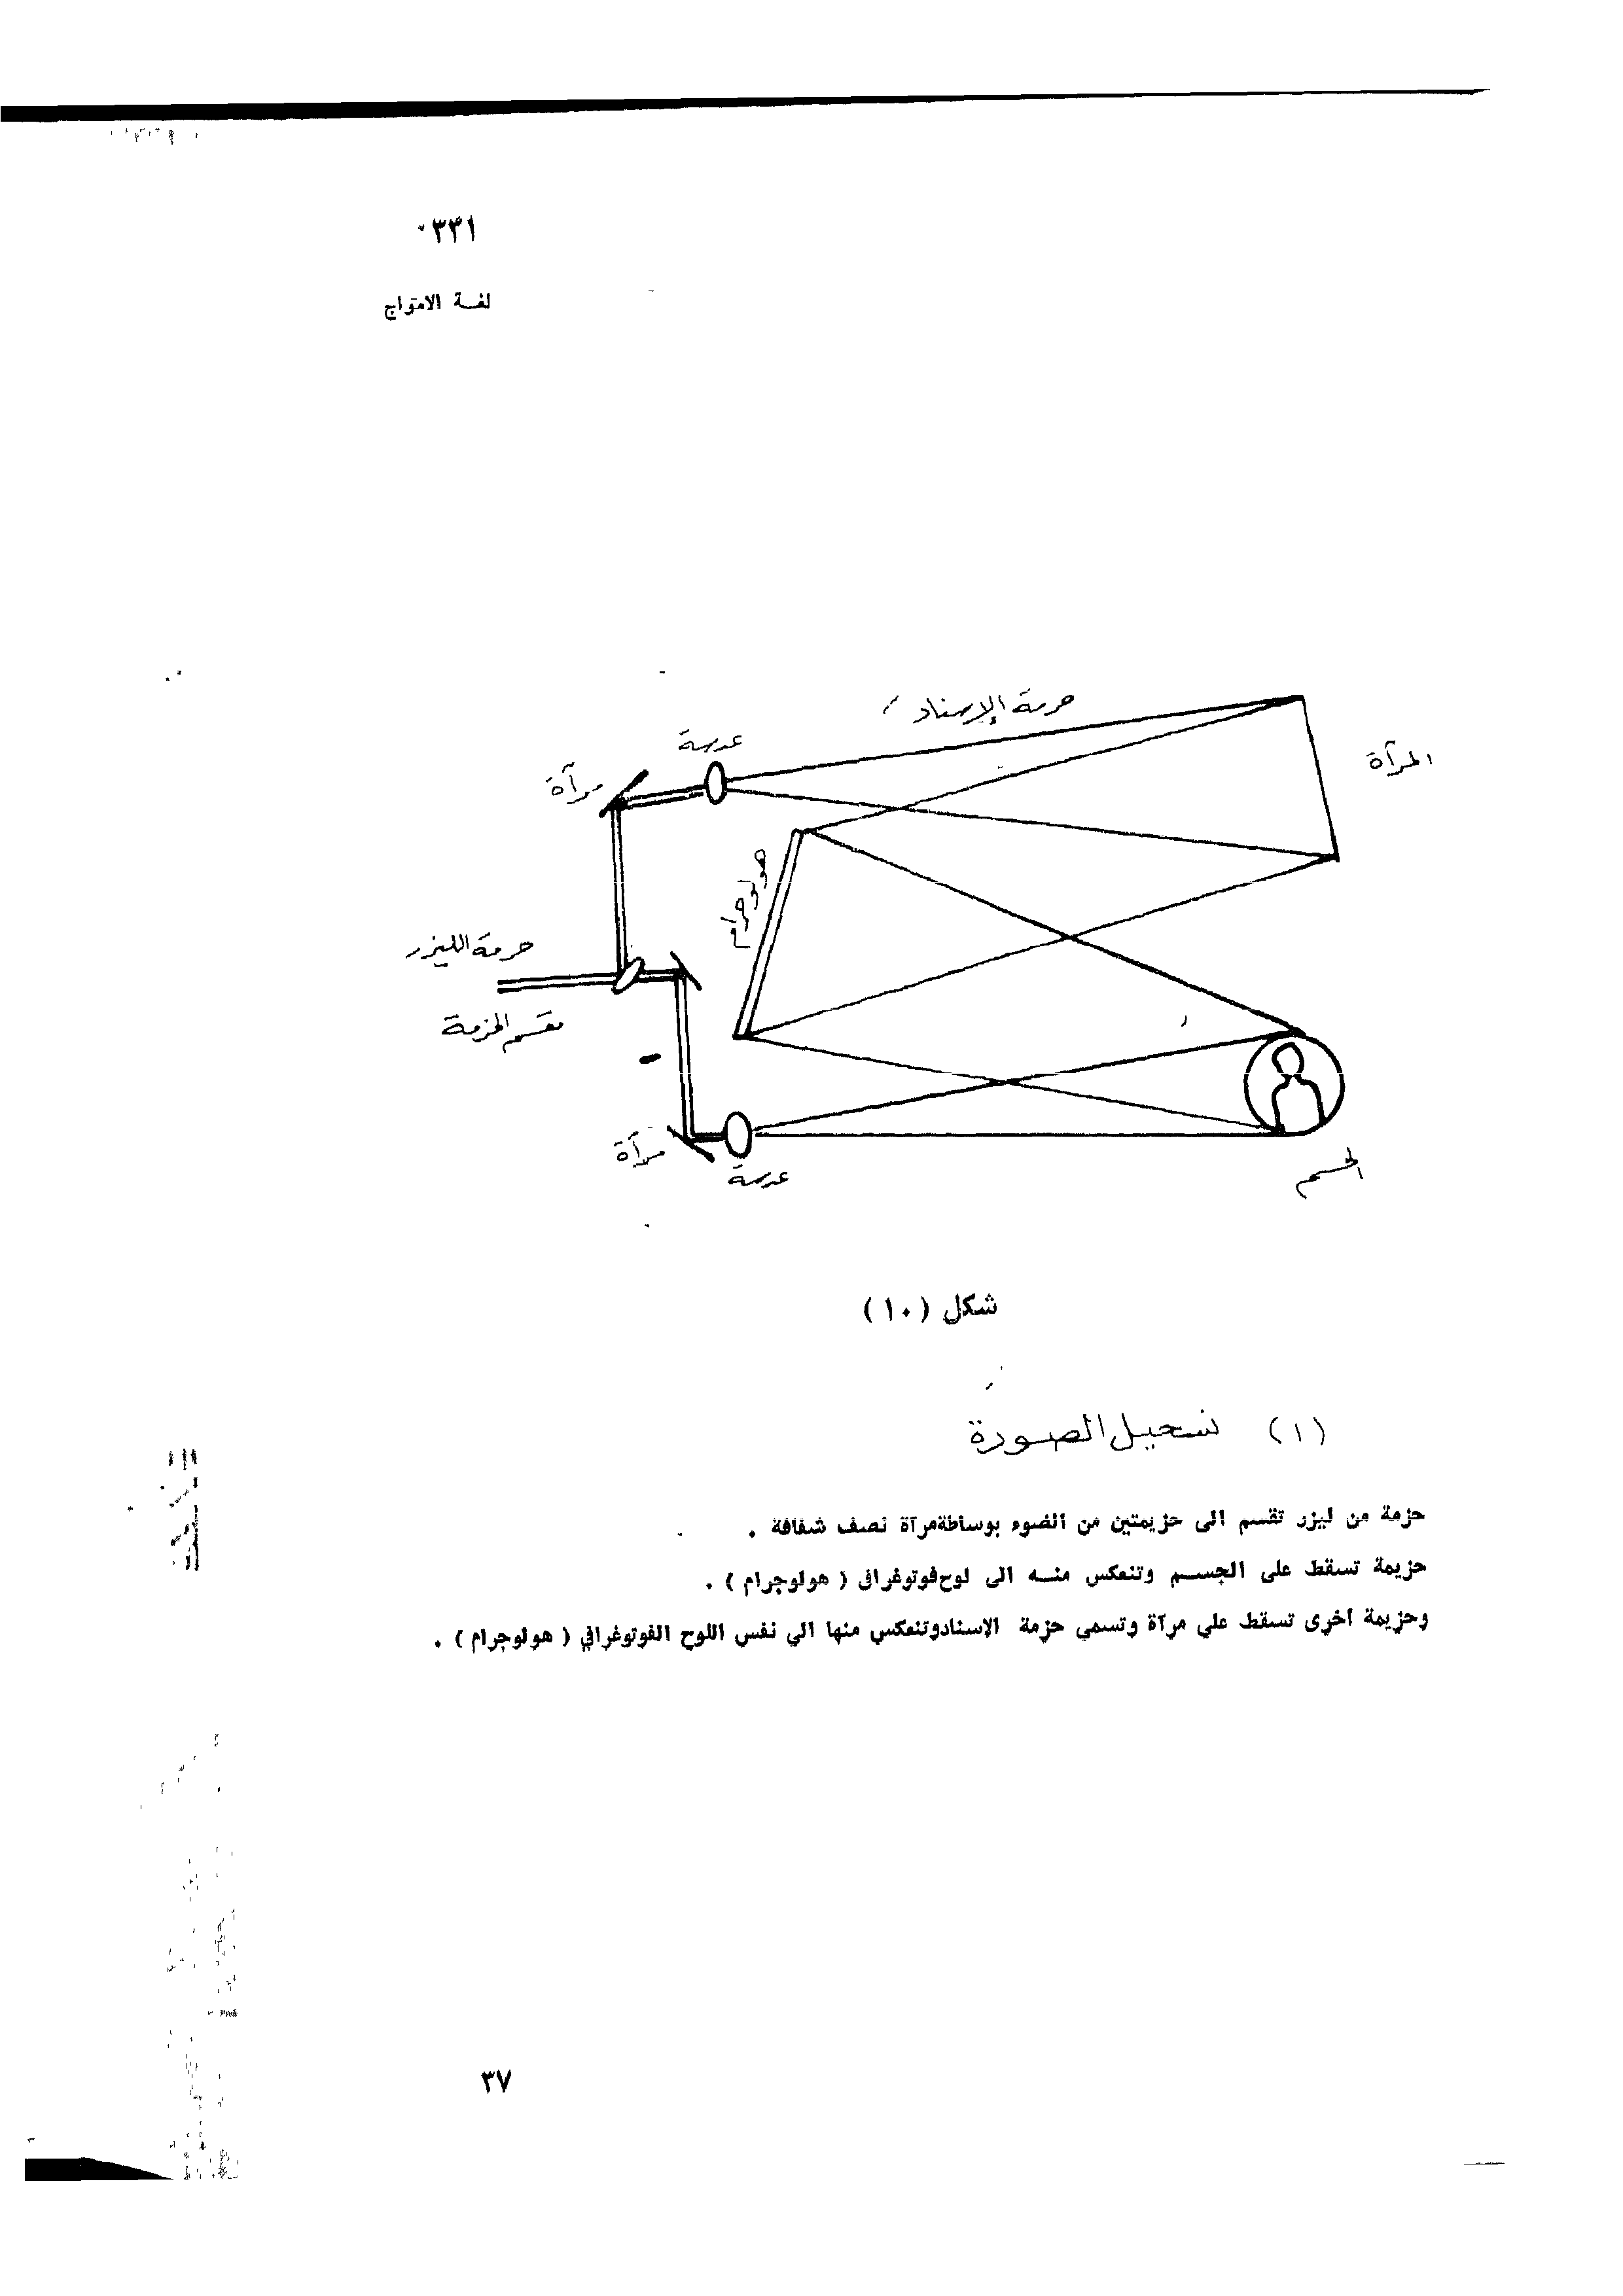 ٣٣١
لغة الامواج
حزمة الإسناد
عدسة
مرآة
المرآة
هولوجرام
حزمة الليزر
مقسم الحزمة
مرآة
عدسة
الجسم
شكل (١٠)
(١) تسجيل الصورة
حزمة من ليزر تقسم الى حزيمتين من الضوء بوساطة مرآة نصف شفافة .
حزيمة تسقط على الجسم وتنعكس منه الى لوح فوتوغرافى ( هولوجرام ) .
وحزيمة أخرى تسقط علي مرآة وتسمي حزمة الإسناد وتنعكس منها الي نفس اللوح الفوتوغرافي ( هولوجرام ) .
٣٧